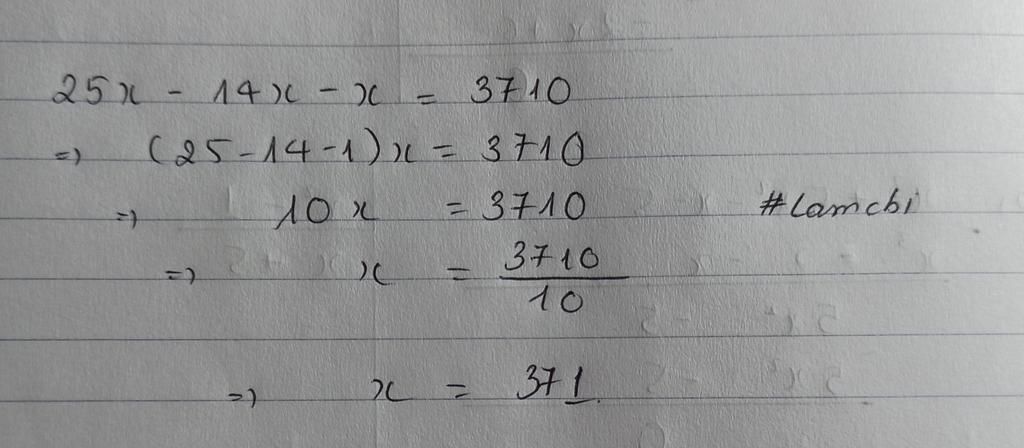 25x - 14x - x = 3710
=) (25-14-1)x = 3710
=) 10x = 3710 #Lamcbi
=) x = 3710/10
=) x = 371